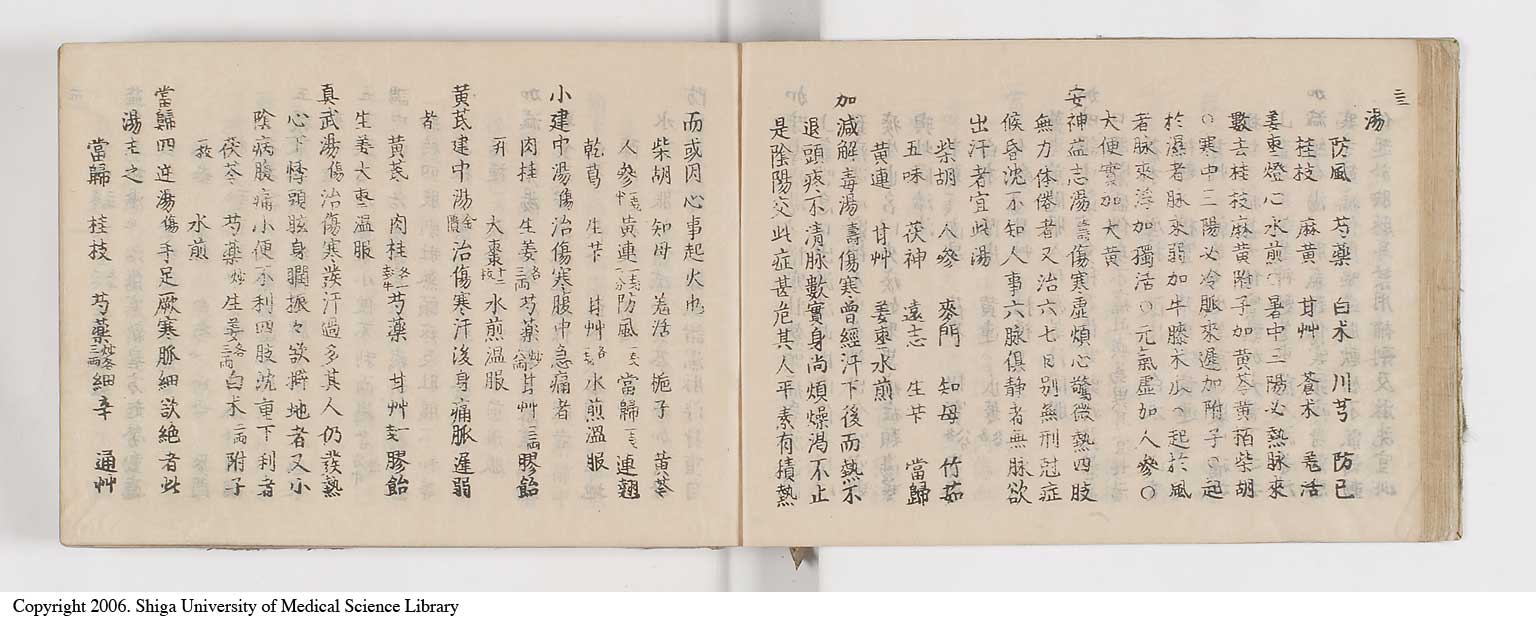 三
湯
防風 芍藥 白朮 川芎 防已
桂枝 麻黄 甘艸 蒼朮 羗活
姜枣燈心水煎○暑中三陽必熱脉來
數去桂枝麻黄附子加黄芩黄栢柴胡
○寒中三陽必冷脈來遲加附子○起
於濕者脉來弱加牛膝木瓜○起於風
者脉來浮加獨活○元氣虚加人參○
大便實加大黄
安神益志湯壽傷寒虚煩心驚微熱四肢
無力体倦者又治六七日別無刑尅症
候昏沈不知人事六脉俱静者無脉欲
出汗者宜此湯
柴胡 人參 麥門 知母 竹茹
五味 茯神 遠志 生芐 當歸
黄連 甘艸 姜棗水煎
加減解毒湯壽傷寒曾經汗下後而熱不
退頭疼不清脉數實身尚煩燥渇不止
是陰陽交此症甚危其人平素有積熱
而或因心事起火也
柴胡 知母 羗活 梔子 黄芩
人參 黄連 防風 當歸 連翹
乾葛 生芐 甘艸 水煎溫服
小建中湯傷治傷寒腹中急痛者
肉桂 生姜各三両 芍藥 甘艸 膠飴
一升 大棗十二枚 水煎温服
黄芪建中湯 治傷寒汗後身痛脈遲弱
者
黄芪 肉桂 芍藥 甘艸 膠飴
生姜大枣温服
真武湯傷治傷寒發汗過多其人仍發熱
心下悸頭眩身瞤振々欲擗地者又少
陰病腹痛小便不利四肢沈重下利者
茯苓 芍藥炒 生姜各三両 白朮二両 附子
一枚 水煎
當歸四逆湯傷手足厥寒脈細欲絶者此
湯主之
當歸 桂枝 芍藥 細辛 通艸
Copyright 2006. Shiga University of Medical Science Library